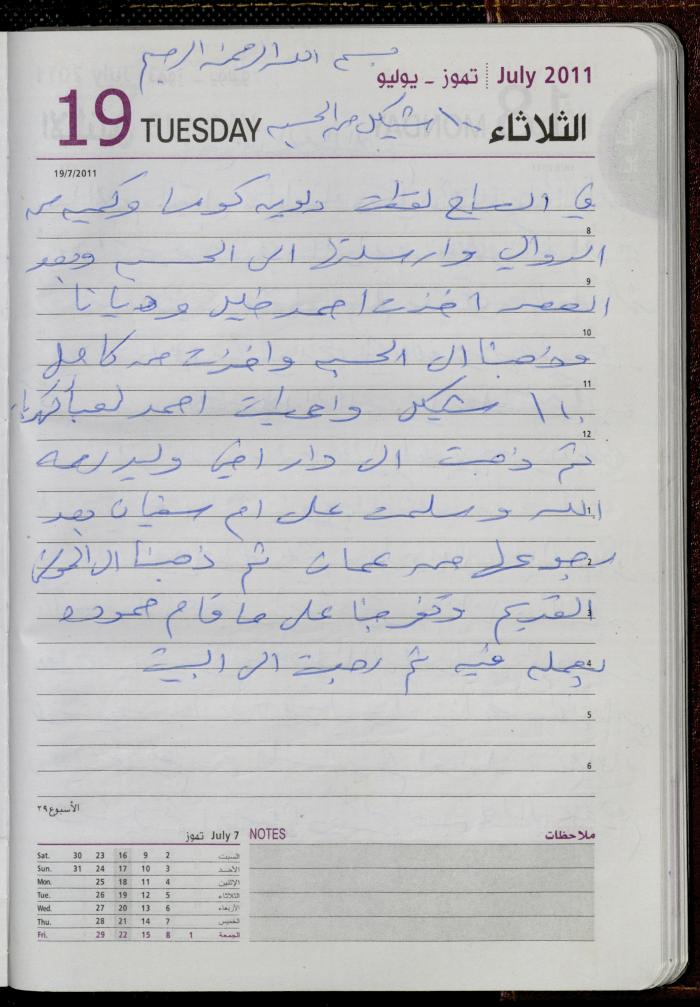 بسم الله الرحمن الرحيم
تموز ـ يوليو July 2011
19 TUESDAY ١٠ شيكل من الحسبه الثلاثاء
19/7/2011
في الصباح لقطت دلوين كوسا وكميه من
8
الدوالي وارسلتها الى الحسبه وبعد
9
العصر اخذت احمد خليل وديانا
10
وذهبنا الى الحسبه واخذت من كامل
11
١١٠ شيكل واعطيت احمد
12
ثم ذهبت الى دار اخي وليد رحمه
الله وسلمت على ام سفيان بعد
1
رجوعها من عمان ثم ذهبنا الى
2
القديم وتفرجنا على ما قام حموده
3
بعمله فيه ثم رجعت الى البيت
4
5
6
الأسبوع ٢٩
July 7 تموز
Sat. 30 23 16 9 2 السبت
Sun. 31 24 17 10 3 الأحد
Mon. 25 18 11 4 الإثنين
Tue. 26 19 12 5 الثلاثاء
Wed. 27 20 13 6 الأربعاء
Thu. 28 21 14 7 الخميس
Fri. 29 22 15 8 1 الجمعة
NOTES ملاحظات